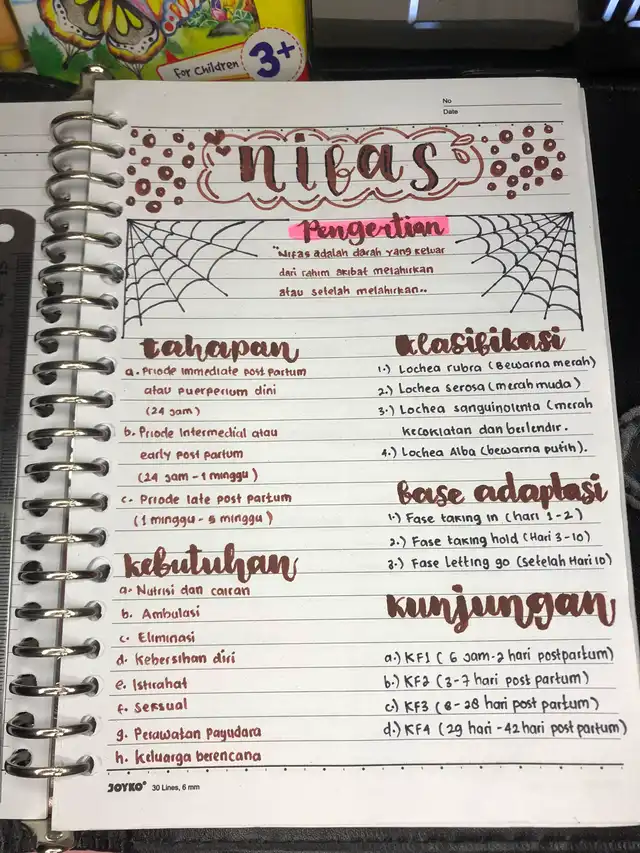 For Children
3+
No
Date
nifas
Pengertian
"Nifas adalah darah yang keluar
dari rahim akibat melahirkan
atau setelah melahirkan..
tahapan
a. Priode immediate post partum
atau puerperium dini
(24 jam)
b. Priode Intermedial atau
early post partum
(24 jam - 1 minggu)
c. Priode late post partum
(1 minggu - 5 minggu)
kebutuhan
a. Nutrisi dan cairan
b. Ambulasi
c. Eliminasi
d. Kebersihan diri
e. Istirahat
f. Seksual
g. Perawatan Payudara
h. Keluarga berencana
Klasifikasi
1.) Lochea rubra (Bewarna merah)
2.) Lochea serosa (merah muda)
3.) Lochea sanguinolenta (merah
kecoklatan dan berlendir.
4.) Lochea Alba (bewarna putih).
fase adaptasi
1.) Fase taking in (hari 1-2)
2.) Fase taking hold (Hari 3-10)
3.) Fase Letting go (setelah Hari 10)
kunjungan
a.) KF1 ( 6 jam-2 hari postpartum)
b.) KF2 (3-7 hari post partum)
c) KF3 (8-28 hari post partum)
d.) KF4 (29 hari -42 hari post partum)
JOYKO® 30 Lines, 6 mm